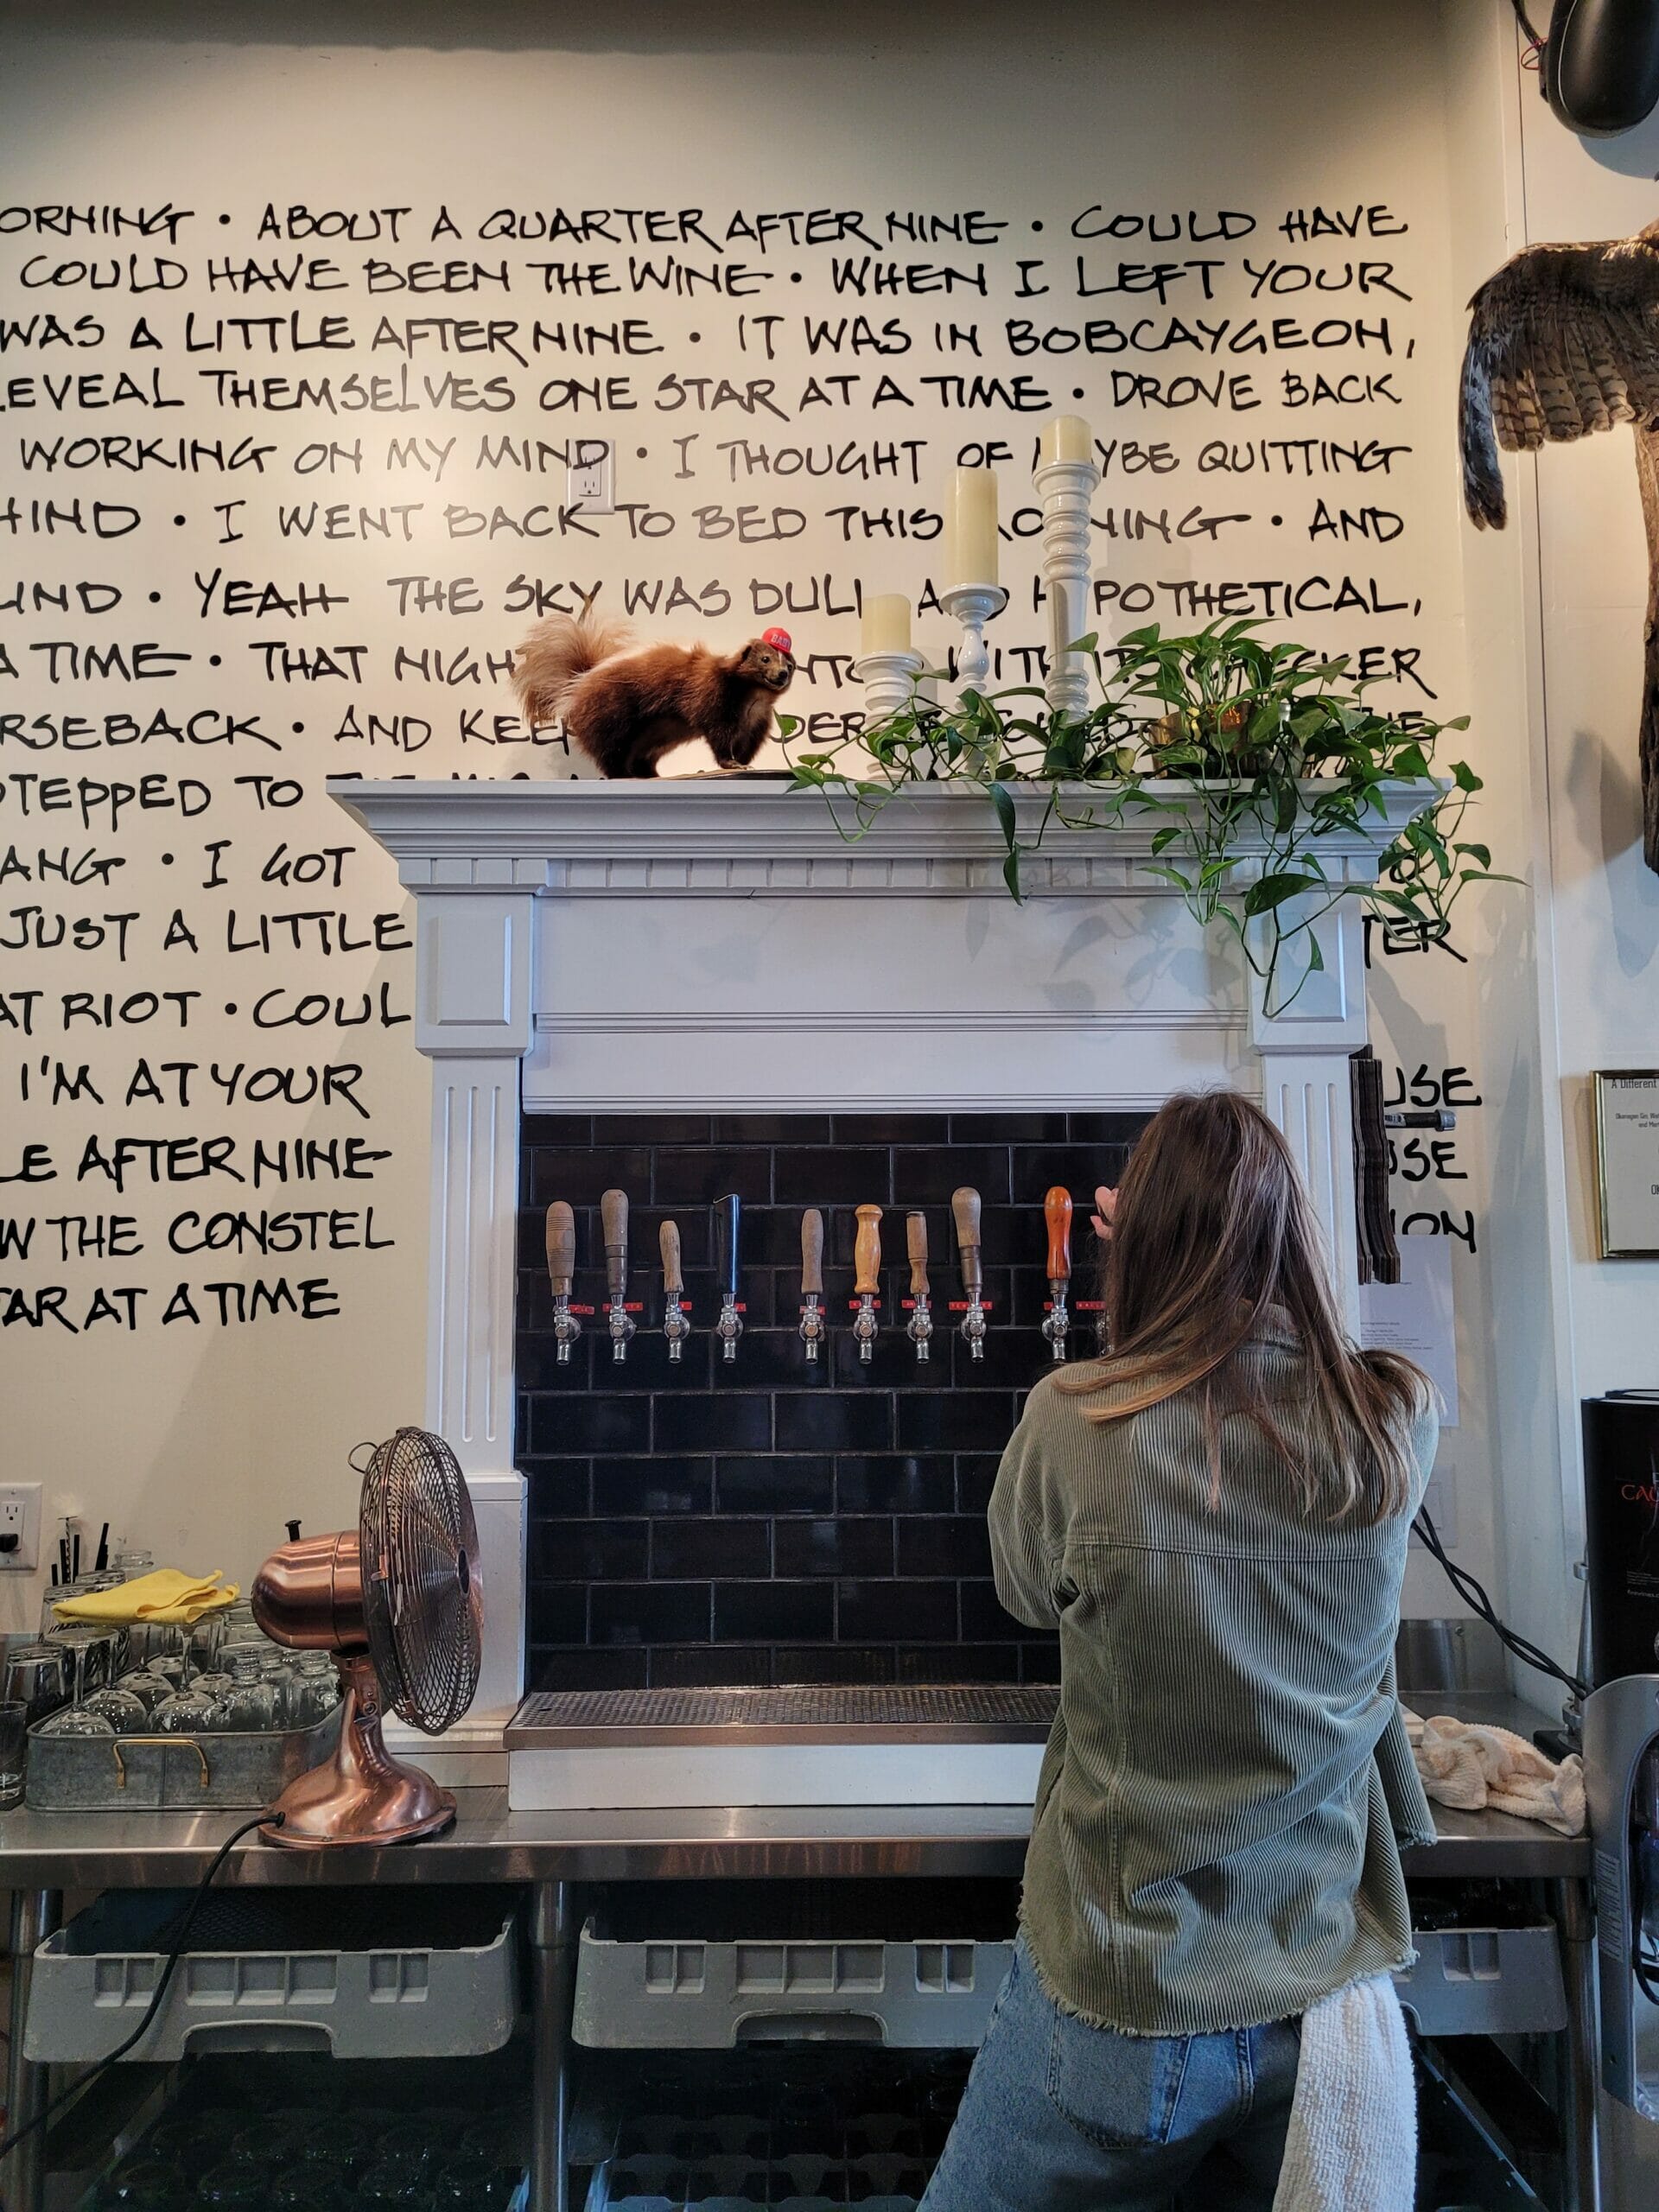 ORNING • ABOUT A QUARTER AFTER NINE • COULD HAVE
COULD HAVE BEEN THE WINE • WHEN I LEFT YOUR
WAS A LITTLE AFTER NINE • IT WAS IN BOBCAYGEON,
EVEAL THEMSELVES ONE STAR AT A TIME • DROVE BACK
WORKING ON MY MIND • I THOUGHT OF YBE QUITTING
HIND • I WENT BACK TO BED THIS NING • AND
IND • YEAH THE SKY WAS DULL A POTHETICAL,
A TIME • THAT NIGH NTO WITH ITS CHECKER
RSEBACK • AND KEEP DER
STEPPED TO
ANG • I GOT
JUST A LITTLE TER
AT RIOT • COUL
I'M AT YOUR USE
LE AFTER NINE USE
W THE CONSTEL ION
TAR AT A TIME
A Different